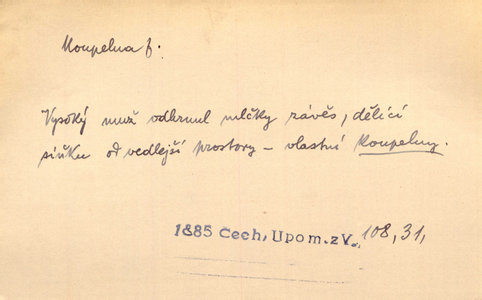 Koupelna f.
Vysoký muž odhrnul mlčky závěs, dělící
síňku od vedlejší prostory – vlastní koupelny.
1885 Čech, Upom. z V., 108, 31,